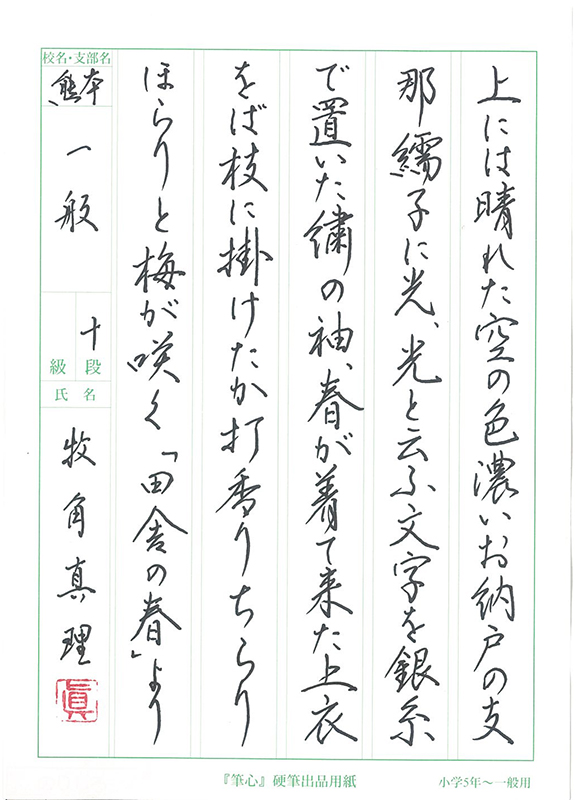 上には晴れた空の色濃いお納戸の支
那繻子に光、光と云ふ文字を銀糸
で置いた繍の袖、春が着て来た上衣
をば枝に掛けたか打香りちらり
ほらりと梅が咲く「田舎の春」より
校名・支部名
熊本
一般
十
段
級
氏名
牧角真理
眞
『筆心』硬筆出品用紙
小学5年〜一般用